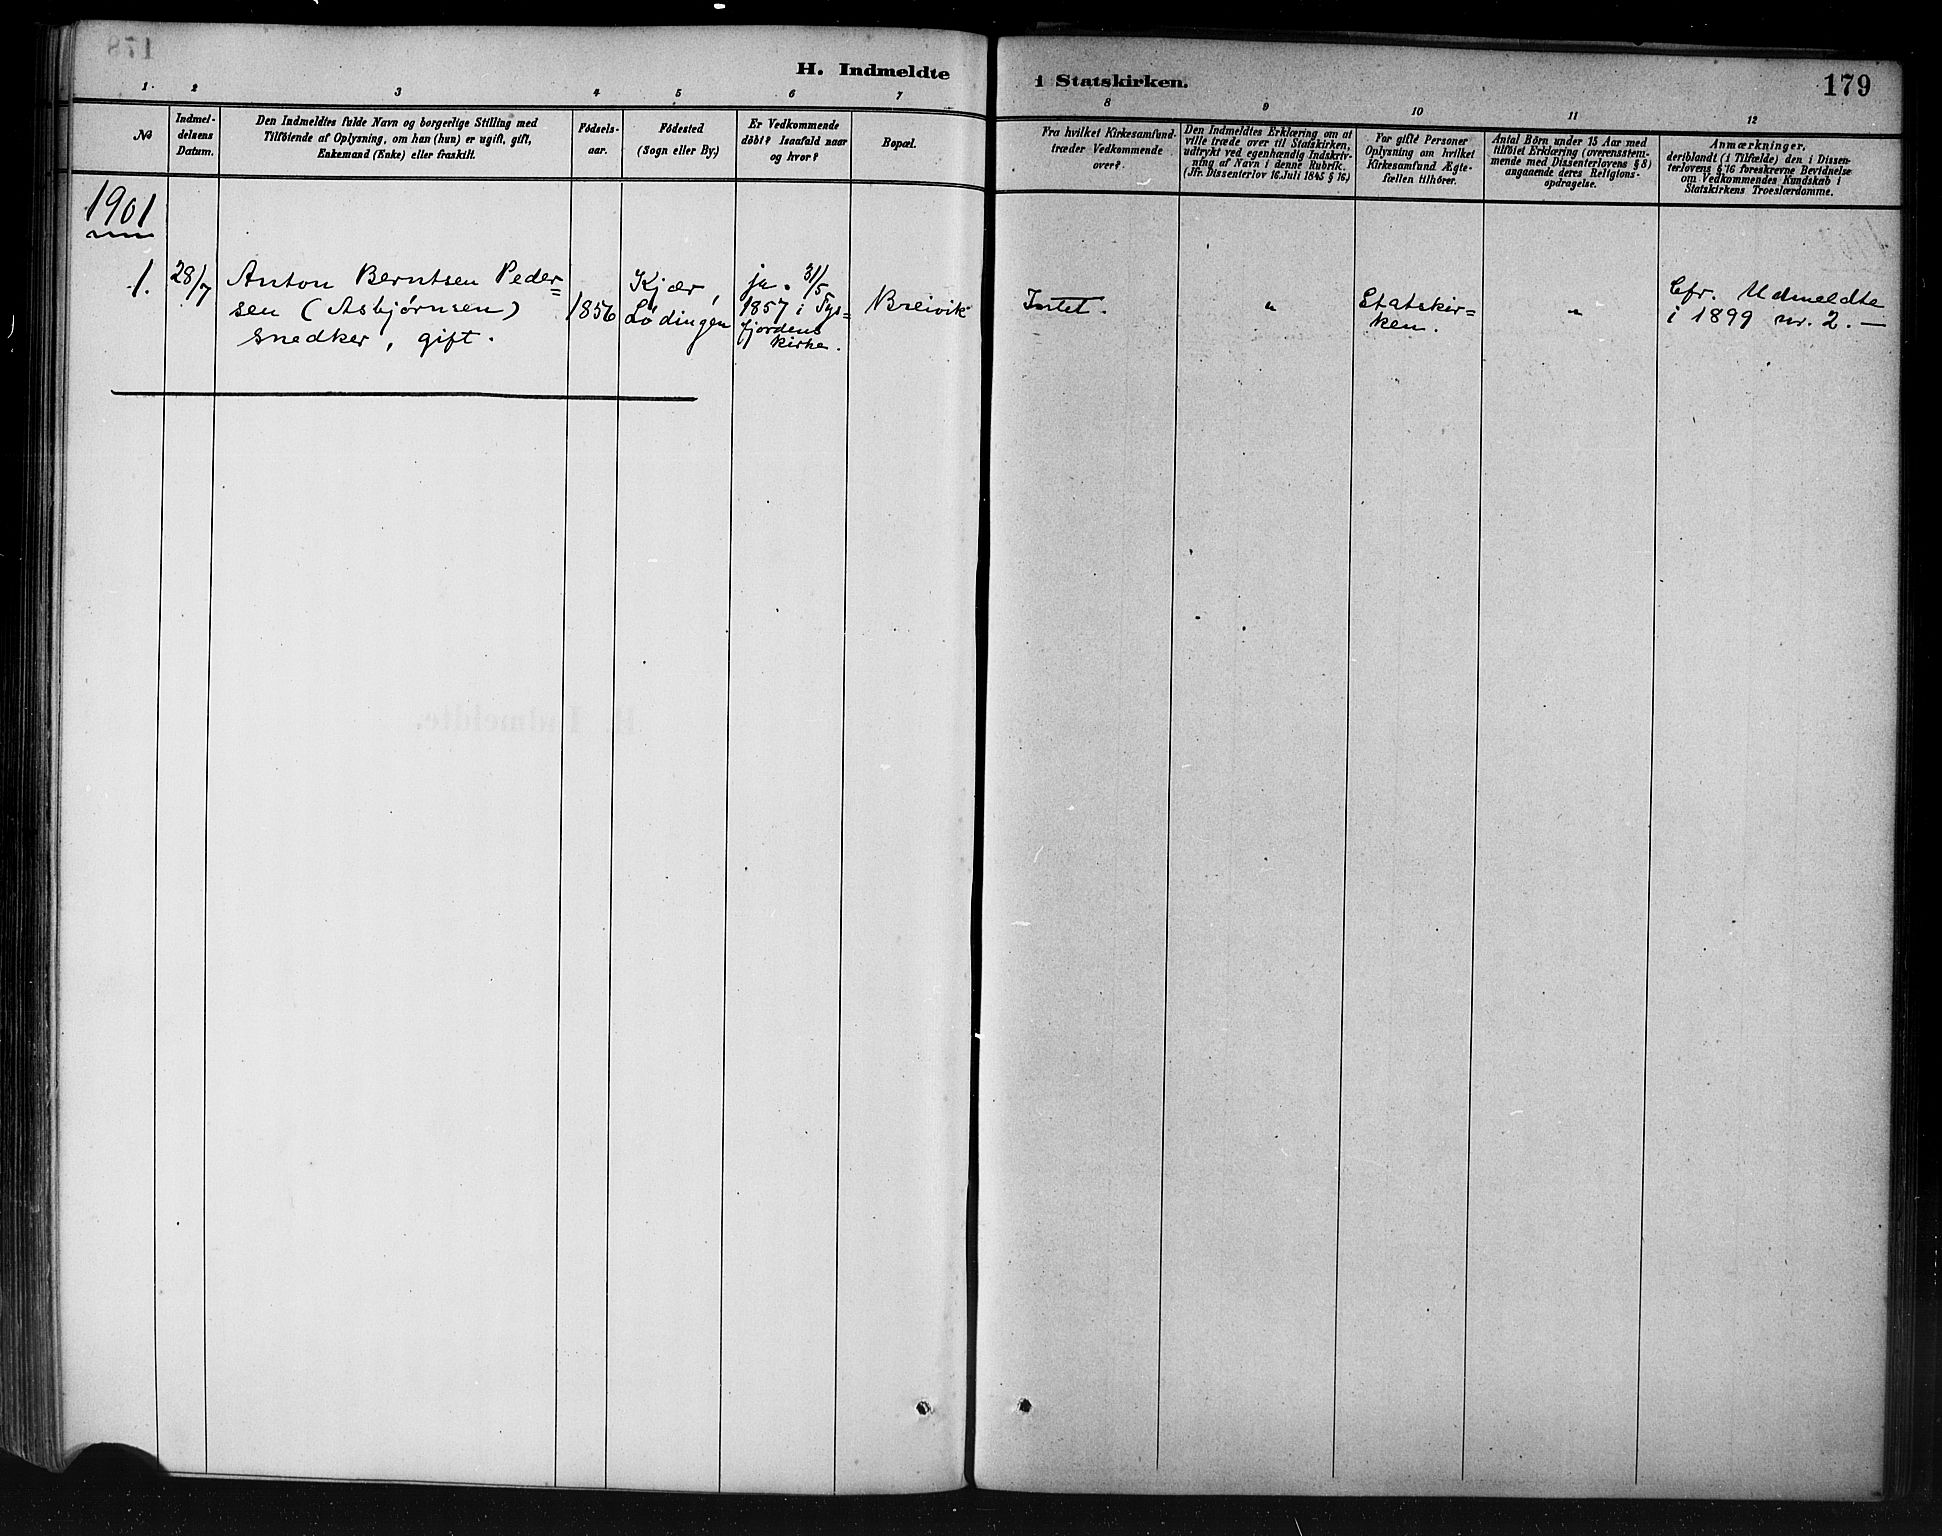 H. Indmeldte i Statskirken.
179
1.
2
3
4
5
6
7
8
9
10
11
12
No
Indmel-
delsens
Datum.
Den Indmeldtes fulde Navn og borgerlige Stilling med
Tilföiende af Oplysning, om han (hun) er ugift, gift,
Enkemand (Enke) eller fraskilt.
Födsels-
aar.
Födested
(Sogn eller By.)
Er Vedkommende
döbt? Isaafald naar
og hvor?
Bopæl.
Fra hvilket Kirkesamfund
træder Vedkommende
over?
Den Indmeldtes Erklæring om at
ville træde over til Statskirken,
udtrykt ved egenhændig Indskriv-
ning af Navn i denne Rubrik.
(Jfr. Dissenterlov 16. Juli 1845 § 16)
For gifte Personer
Oplysning om hvilket
Kirkesamfund Ægte-
fællen tilhörer.
Antal Börn under 15 Aar med
tilföiet Erklæring (overensstem-
mende med Dissenterlovens § 8)
angaaende deres Religions-
opdragelse.
Anmærkninger,
deriblandt (i Tilfælde) den i Dissen-
terlovens § 16 foreskrevne Bevidnelse
om Vedkommendes Kundskab i
Statskirkens Troeslærdomme.
1901
1.
28/7
Anton Berntsen Peder=
sen (Asbjørnsen)
Snedker, gift.
1856
Kjær,
Lødingen
ja. 31/5
1857 i Tys=
fjordens
kirke.
Breivik
Intet.
"
Statskir=
ken.
"
Cfr. Udmeldte
i 1899 nr. 2. —